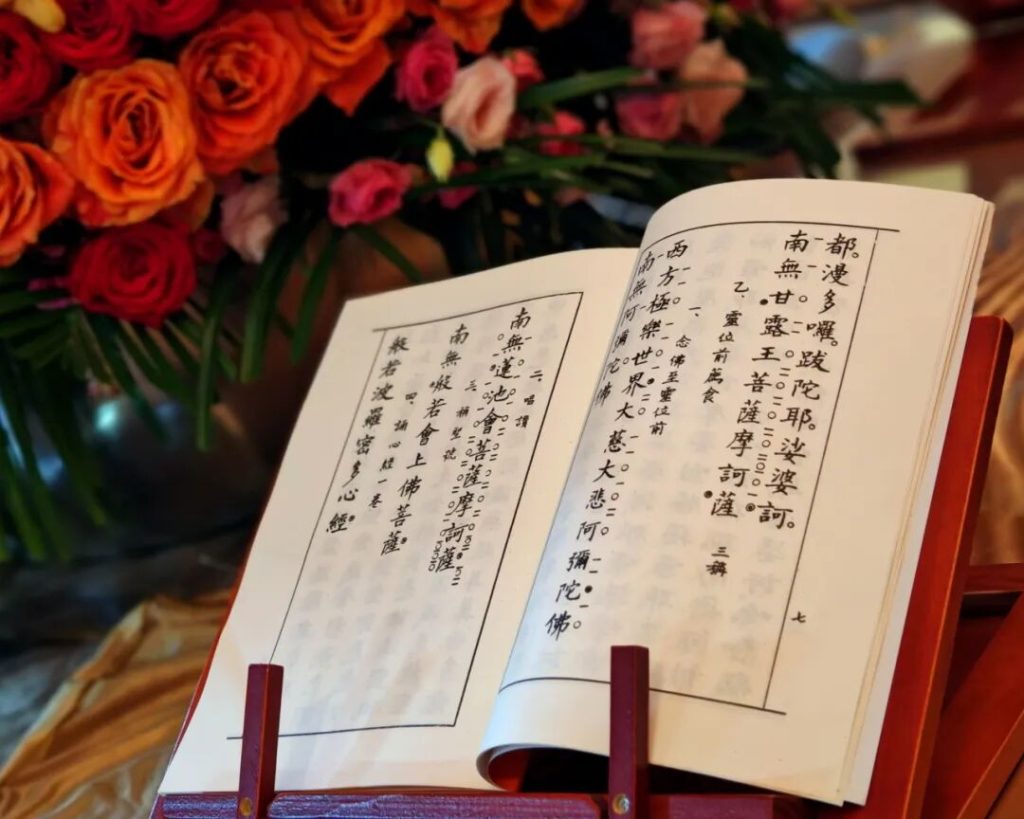 都。漫多囉。跋陀耶。娑婆訶。
南無甘露王菩薩摩訶薩 三稱
乙、靈位前薦食
一、念佛至靈位前
西方極樂世界大慈大悲阿彌陀佛
南無阿彌陀佛
七
二、唱讚
南無蓮池會菩薩摩訶薩
三、稱聖號
南無般若會上佛菩薩
四、誦心經一卷
般若波羅密多心經